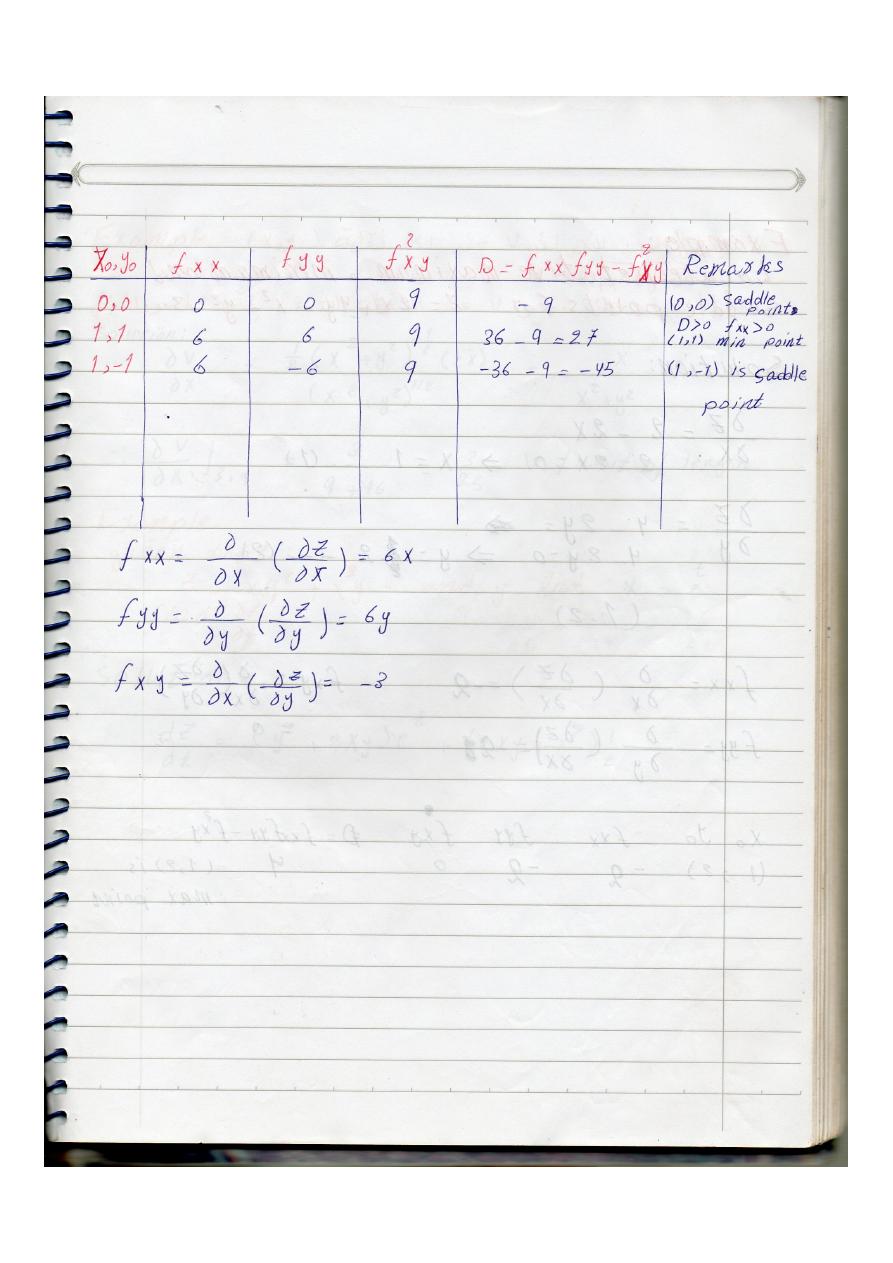 x₀,y₀ f x x f y y f²x y D = f x x f y y - f²x y Remarks
0,0 0 0 9 - 9 (0,0) saddle points
1,1 6 6 9 36 - 9 = 27 D>0 fxx>0 (1,1) min point
1,-1 6 -6 9 -36 - 9 = -45 (1,-1) is saddle point
f xx = ∂/∂x (∂z/∂x) = 6x
f yy = ∂/∂y (∂z/∂y) = 6y
f x y = ∂/∂x (∂z/∂y) = -3